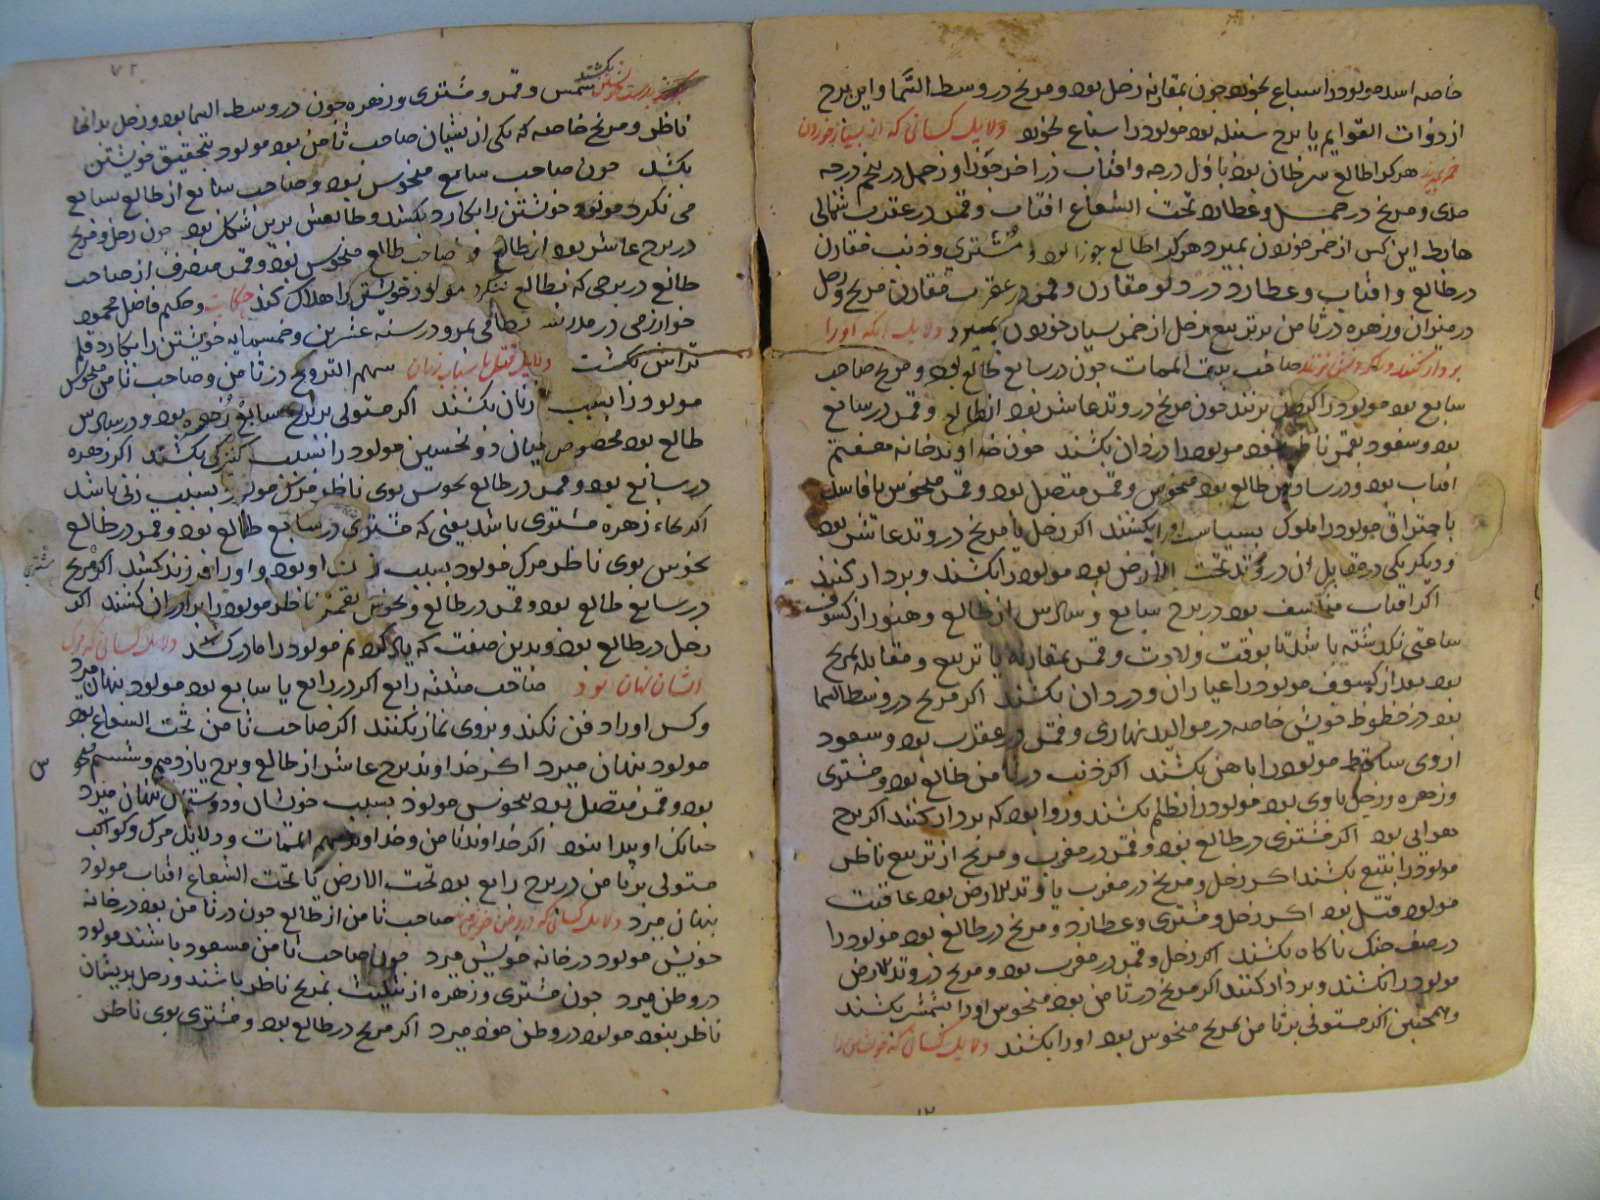 خاصه اسد مولود را سباع بخورد چون بمقارنه زحل بود و مریخ در وسط السما و این برج
از ذوات القوایم یا برج سنبله بود مولود را سباع بخورد دلایل کسانی که از بسیار خوردن
خمر میرند هر کرا طالع سرطان بود باول درجه و افتاب در اخر جوزا و زحل در پنجم درجه
جدی و مریخ در حمل و عطارد تحت الشعاع افتاب و قمر در عقرب شمالی
هابط این کس از خمر خوردن بمیرد هر کرا طالع جوزا بود و مشتری و ذنب مقارن
در طالع و افتاب و عطارد در دلو مقارن و قمر در عقرب مقارن مریخ و زحل
در میزان و زهره در ثامن بر تربیع زحل از خمر بسیار خوردن بمیرد دلایل انکه او را
بردار کنند و یا کردنش بزنند صاحب بیت الممات چون در سابع طالع بود و مریخ صاحب
سابع بود مولود را کردن بزنند چون مریخ در وتد عاشر بود از طالع و قمر در سابع
بود و سعود بقمر ناظر نبود مولود را دزدان بکشند چون خداوند خانه هفتم
افتاب بود و در سادس طالع بود منحوس و قمر متصل بود و قمر منحوس یا فاسد
باحتراق مولود را ملوک بسیاست او را بکشند اکر زحل یا مریخ در وتد عاشر بود
و دیکر یکی در مقابل آن در وتد تحت الارض بود مولود را بکشند و بردار کنند
اکر افتاب منکسف بود در برج سابع و سادس از طالع و هنوز از کسوف
ساعتی نکذشته باشد تا بوقت ولادت و قمر بمقارنه یا تربیع و مقابله مریخ
بود بعد از کسوف مولود را عیاران و دزدان بکشند اکر مریخ در وسط السما
بود در حظوظ خویش خاصه در موالید نهاری و قمر در عقرب بود و سعود
از وی ساقط مولود را باهن بکشند اکر ذنب در ثامن طالع بود و مشتری
و زهره و زحل با وی بود مولود را بظلم بکشند و روا بود که بردار کنند اکر برج
هوایی بود اکر مشتری در طالع بود و قمر در مغرب و مریخ از تربیع ناظر
مولود را بتیغ بکشند اکر زحل و مریخ در مغرب یا وتد الارض بود عاقبت
مولود قتل بود اکر زحل و مشتری و عطارد و مریخ در طالع بود مولود را
در صف جنک ناکاه بکشند اکر زحل و قمر در مغرب بود و مریخ در وتد الارض
مولود را بکشند و بردار کنند اکر مریخ در ثامن بود منحوس او را بشمشیر بکشند
و همچنین اکر مستولی بر ثامن بمریخ منحوس بود او را بکشند دلایل کسانی که خویشتن را
۷۲
بدست خویشتن بکشند شمس و قمر و مشتری و زهره چون در وسط السما بود و زحل بدانها
ناظر و مریخ خاصه که یکی از یشان صاحب ثامن بود مولود بتحقیق خویشتن
بکشد چون صاحب سابع منحوس بود و صاحب سابع از طالع بسابع
می نکرد مولود خویشتن را بکارد بکشد و طالعش برین شکل بود چون زحل و مریخ
در برج عاشر بود از طالع و صاحب طالع منحوس بود و قمر منصرف از صاحب
طالع در برجی که بطالع ننکرد مولود خویشتن را هلاک کند حکایت و حکیم فاضل محمود
خوارزمی در مدرسه نظامی بمرو در سنه عشرین و خمسمایه خویشتن را بکارد قلم
تراش بکشت دلایل قتل باسباب زنان سهم التزویج در ثامن و صاحب ثامن منحوس
مولود را بسبب زنان بکشند اکر مستولی بر برج سابع زهره بود و در سادس
طالع بود محصور میان دو نحسین مولود را بسبب کنیزکی بکشند اکر زهره
در سابع بود و قمر در طالع نحوس بوی ناظر مرک مولود بسبب زنی باشد
اکر بجاء زهره مشتری باشد یعنی که مشتری در سابع طالع بود و قمر در طالع
نحوس بوی ناظر مرک مولود بسبب زن او بود و او را فرزند کشد اکر مریخ
مشتری
در سابع طالع بود و قمر در طالع و نحوس بقمر ناظر مولود را برادران کشند اکر
زحل در طالع بود و بدین صفت که یاد کردم مولود را مادر کشد دلایل کسانی که مرک
ایشان نهان بود صاحب مثلثه رابع اکر در رابع یا سابع بود مولود نهان میرد
و کس او را دفن نکند و بروی نماز نکنند اکر صاحب ثامن تحت الشعاع بود
مولود پنهان میرد اکر خداوند برج عاشر از طالع و برج یازدهم و ششم
س
بود و قمر متصل بود بنحوس مولود بسبب خویشان و دوستان پنهان میرد
چنانک او پیدا نبود اکر خداوند ثامن و خداوند سهم الممات و دلایل مرک و کواکب
مستولی بر ثامن در برج رابع بود تحت الارض یا تحت الشعاع افتاب مولود
پنهان میرد دلایل کسانی که در وطن خود میرند صاحب ثامن از طالع چون در ثامن بود در خانه
خویش مولود در خانه خویش میرد چون صاحب ثامن مسعود باشد مولود
در وطن میرد چون مشتری و زهره از تثلیث بمریخ ناظر باشند و زحل بدیشان
ناظر نبود مولود در وطن خود میرد اکر مریخ در طالع بود و مشتری بوی ناظر